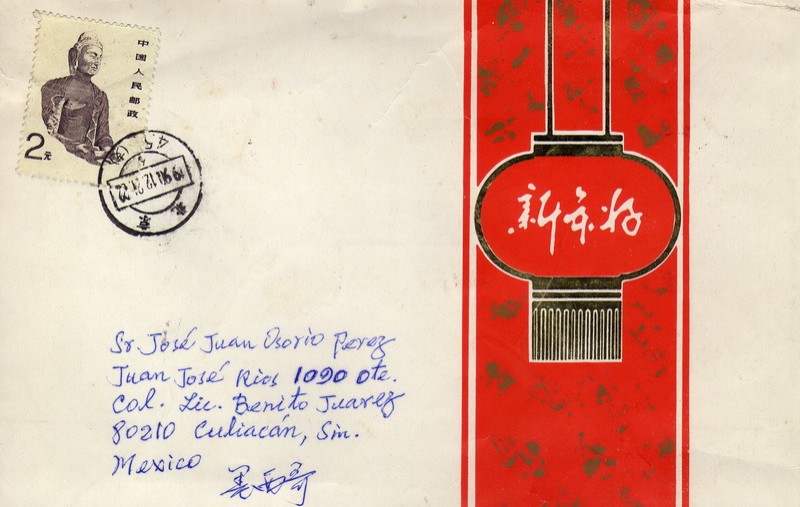 中国人民邮政
2元
45
1990.12.21.22
北京
新年好
Sr. José Juan Osorio Perez
Juan José Rios 1090 Ote.
Col. Lic. Benito Juarez
80210 Culiacán, Sin.
Mexico
墨西哥